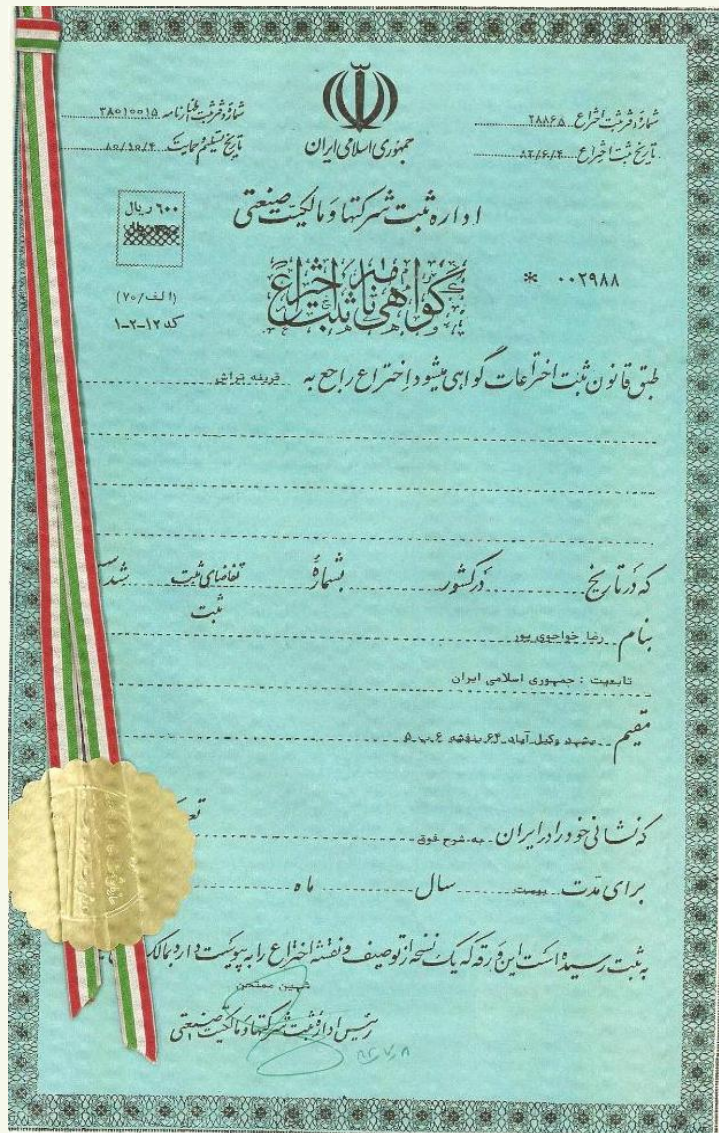 جمهوری اسلامی ایران
شماره و فرم ثبت اختراع ۲۸۸۶۵
تاریخ ثبت اختراع ۸۲/۶/۴
شماره و فرم ثبت اظهارنامه ۳۸۰۱۰۰۱۵
تاریخ تسلیم و حمایت ۸۰/۱۰/۴
اداره ثبت شرکتها و مالکیت صنعتی
۶۰۰ ریال
گواهی نامه ثبت اختراع
* ۰۰۲۹۸۸
(الف/۷۰)
کد ۱۲-۲-۱
طبق قانون ثبت اختراعات گواهی میشود اختراع راجع به قرینه تراش
که در تاریخ در کشور بشماره تقاضای ثبت شد
ثبت
بنام رضا خواجوی پور
تابعیت : جمهوری اسلامی ایران
مقیم مشهد وکیل آباد ۶۴ بنفشه ۶ پ ۵
که نشانی خود را در ایران به شرح فوق
برای مدت بیست سال ماه
به ثبت رسیده است این ورقه که یک نسخه از توصیف و نقشه اختراع را به پیوست دارد بمالک
مهین ممتحن
رئیس اداره ثبت شرکتها و مالکیت صنعتی
۸۲/۷/۸